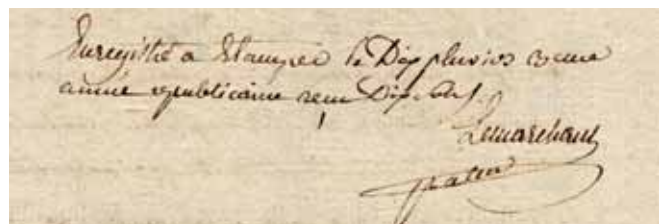 Enregistré a Etampes le Dix pluvios
année republicaine reçu Dix
Lemarchant